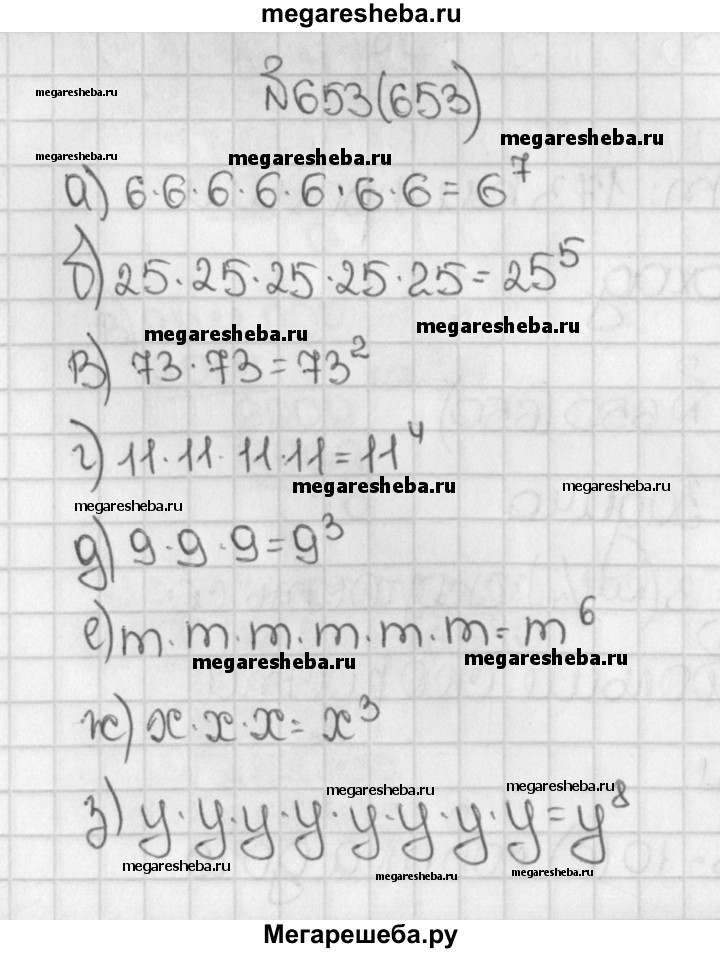 megaresheba.ru
№653(653)
megaresheba.ru
megaresheba.ru
megaresheba.ru
megaresheba.ru
а) 6·6·6·6·6·6·6=6⁷
б) 25·25·25·25·25=25⁵
megaresheba.ru
megaresheba.ru
в) 73·73=73²
г) 11·11·11·11=11⁴
megaresheba.ru
megaresheba.ru
megaresheba.ru
д) 9·9·9=9³
е) m·m·m·m·m·m=m⁶
megaresheba.ru
megaresheba.ru
ж) x·x·x=x³
megaresheba.ru
megaresheba.ru
з) y·y·y·y·y·y·y·y=y⁸
megaresheba.ru
megaresheba.ru
megaresheba.ru
Мегарешеба.ру